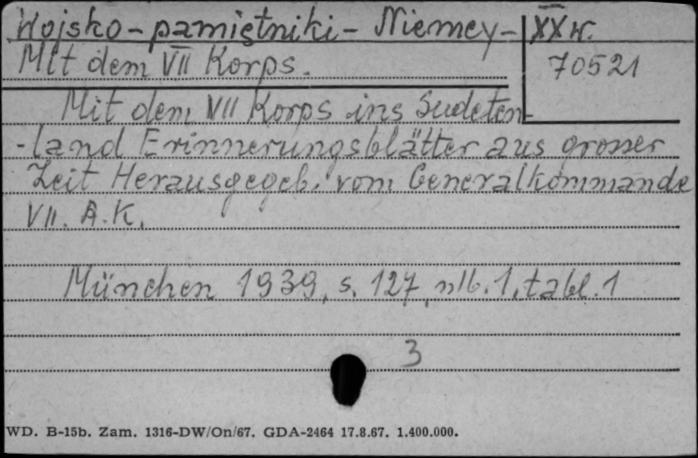 Wojsko - pamiętniki - Niemcy - XX w.
Mit dem VII Korps.
70521
Mit dem VII Korps ins Sudeten-
-land Erinnerungsblätter aus grosser
Zeit Herausgegeb. vom Generalkommando
VII. A.K.
München 1939, s. 127, nlb. 1, tabl. 1
3
WD. B-15b. Zam. 1316-DW/On/67. GDA-2464 17.8.67. 1.400.000.